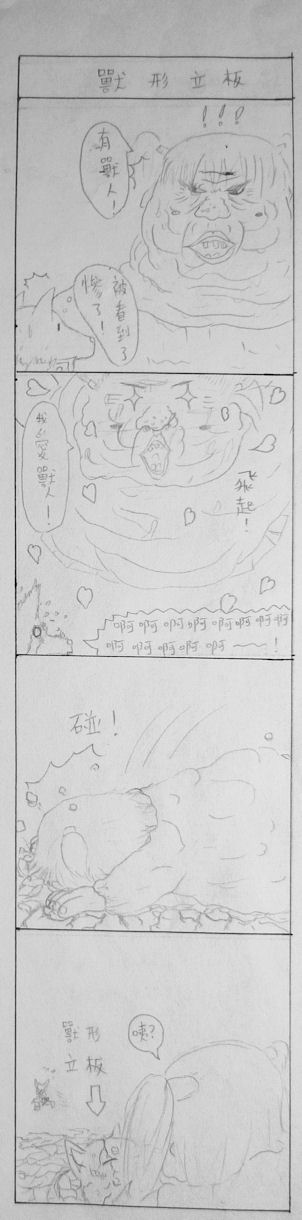 獸形立板
！！！
有獸人！
被看到了
慘了！
我心愛獸人！
飛起！
啊啊啊啊啊啊啊啊
啊啊啊啊啊～～～！
碰！
咦？
獸形
立板